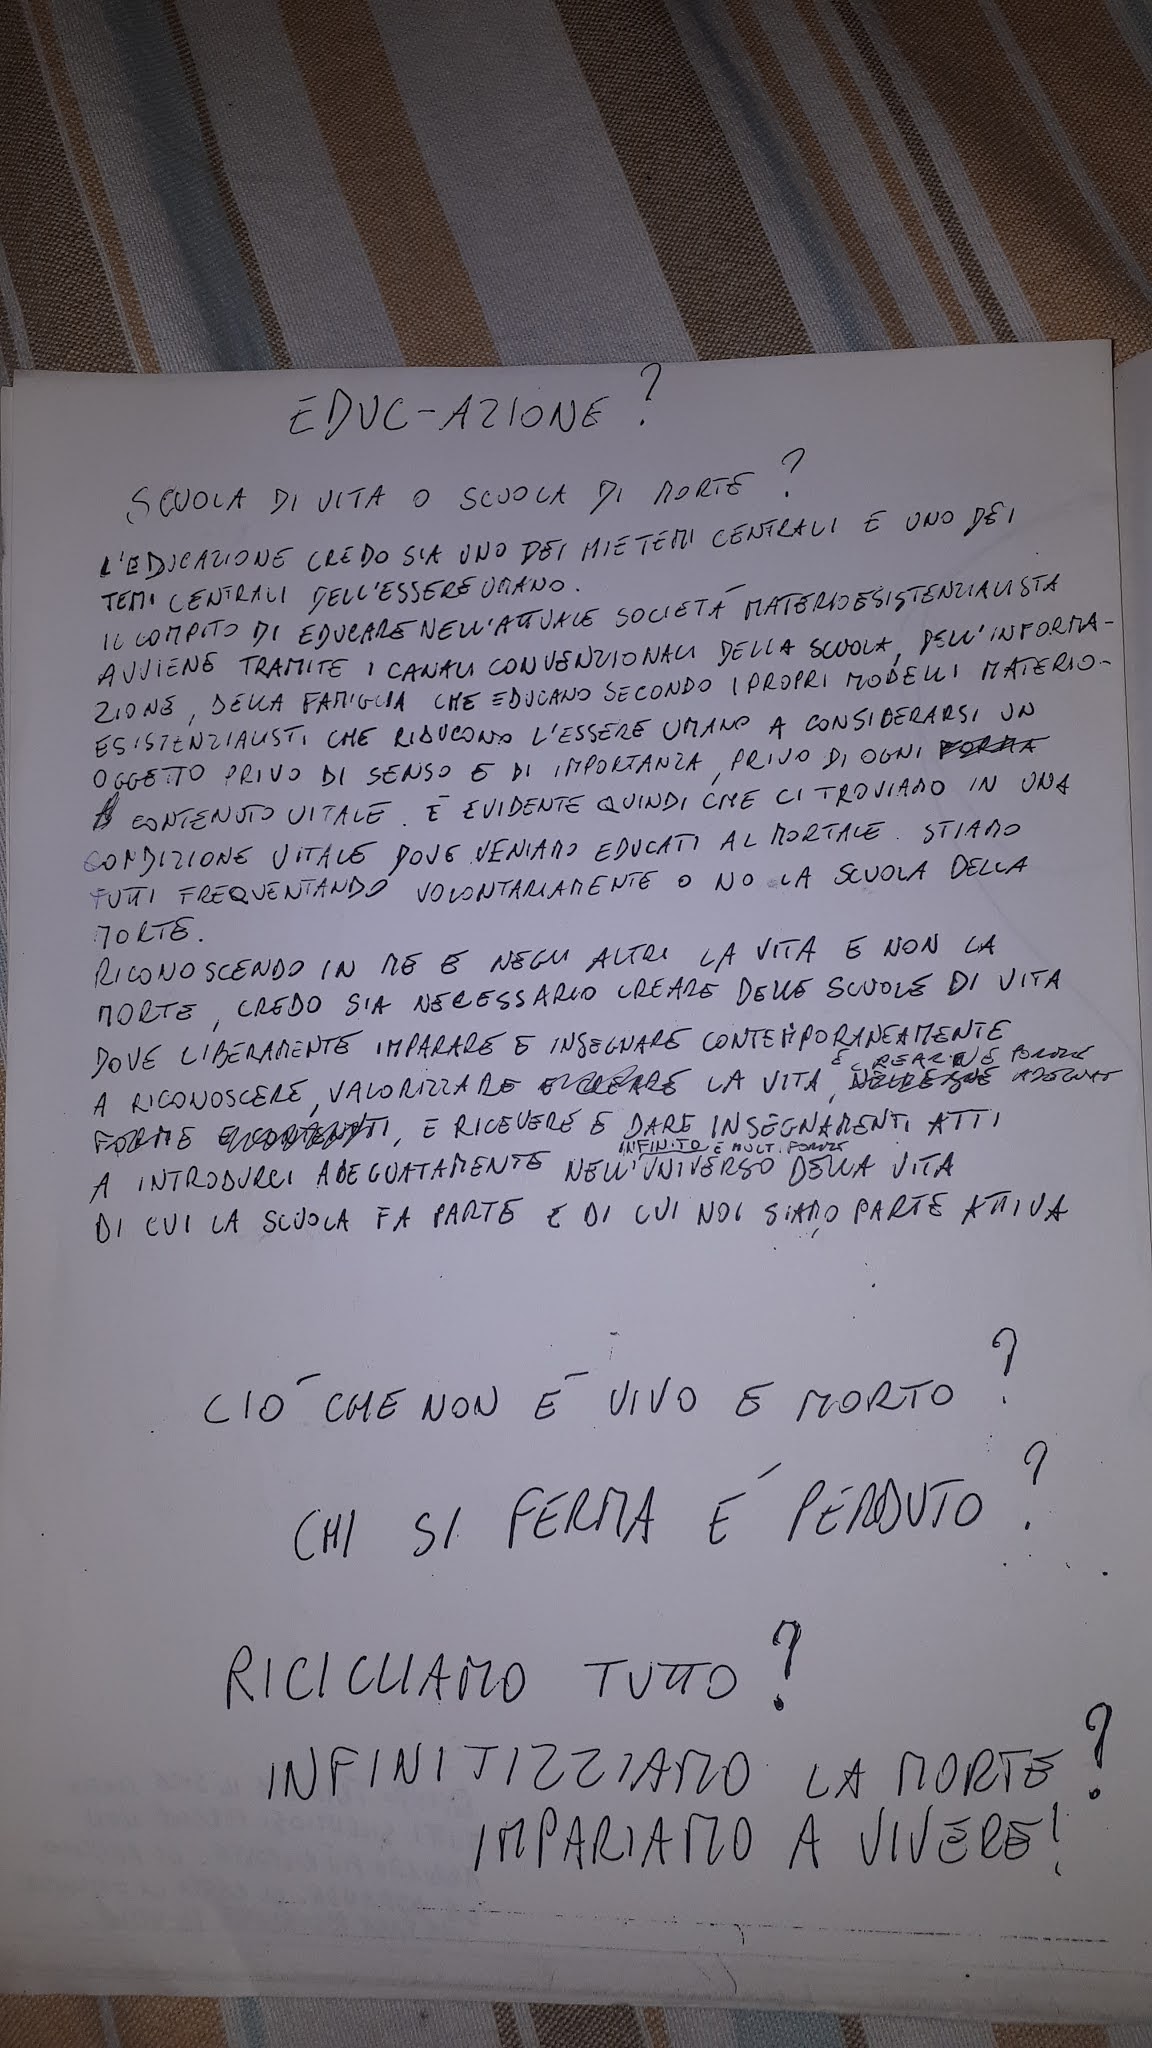 EDUC-AZIONE?
SCUOLA DI VITA O SCUOLA DI MORTE?
L'EDUCAZIONE CREDO SIA UNO DEI MIE TEMI CENTRALI E UNO DEI
TEMI CENTRALI DELL'ESSERE UMANO.
IL COMPITO DI EDUCARE NELL'ATTUALE SOCIETÁ MATERIOESISTENZIALISTA
AVVIENE TRAMITE I CANALI CONVENZIONALI DELLA SCUOLA, DELL'INFORMA-
ZIONE, DELLA FAMIGLIA CHE EDUCANO SECONDO I PROPRI MODELLI MATERIO-
ESISTENZIALISTI CHE RIDUCONO L'ESSERE UMANO A CONSIDERARSI UN
OGGETTO PRIVO DI SENSO E DI IMPORTANZA, PRIVO DI OGNI FORMA
CONTENUTO VITALE. É EVIDENTE QUINDI CHE CI TROVIAMO IN UNA
CONDIZIONE VITALE DOVE VENIAMO EDUCATI AL MORTALE. STIAMO
TUTTI FREQUENTANDO VOLONTARIAMENTE O NO LA SCUOLA DELLA
MORTE.
RICONOSCENDO IN ME E NEGLI ALTRI LA VITA E NON LA
MORTE, CREDO SIA NECESSARIO CREARE DELLE SCUOLE DI VITA
DOVE LIBERAMENTE IMPARARE E INSEGNARE CONTEMPORANEAMENTE
E CREARNE FORME
A RICONOSCERE, VALORIZZARE LA VITA, ADEGUAT
FORME, E RICEVERE E DARE INSEGNAMENTI ATTI
INFINITO E MULTIFORME
A INTRODURCI ADEGUATAMENTE NELL'UNIVERSO DELLA VITA
DI CUI LA SCUOLA FA PARTE E DI CUI NOI SIAMO PARTE ATTIVA
CIÓ CHE NON É VIVO E MORTO?
CHI SI FERMA É PERDUTO?
RICICLIAMO TUTTO?
INFINITIZZIAMO LA MORTE?
IMPARIAMO A VIVERE!